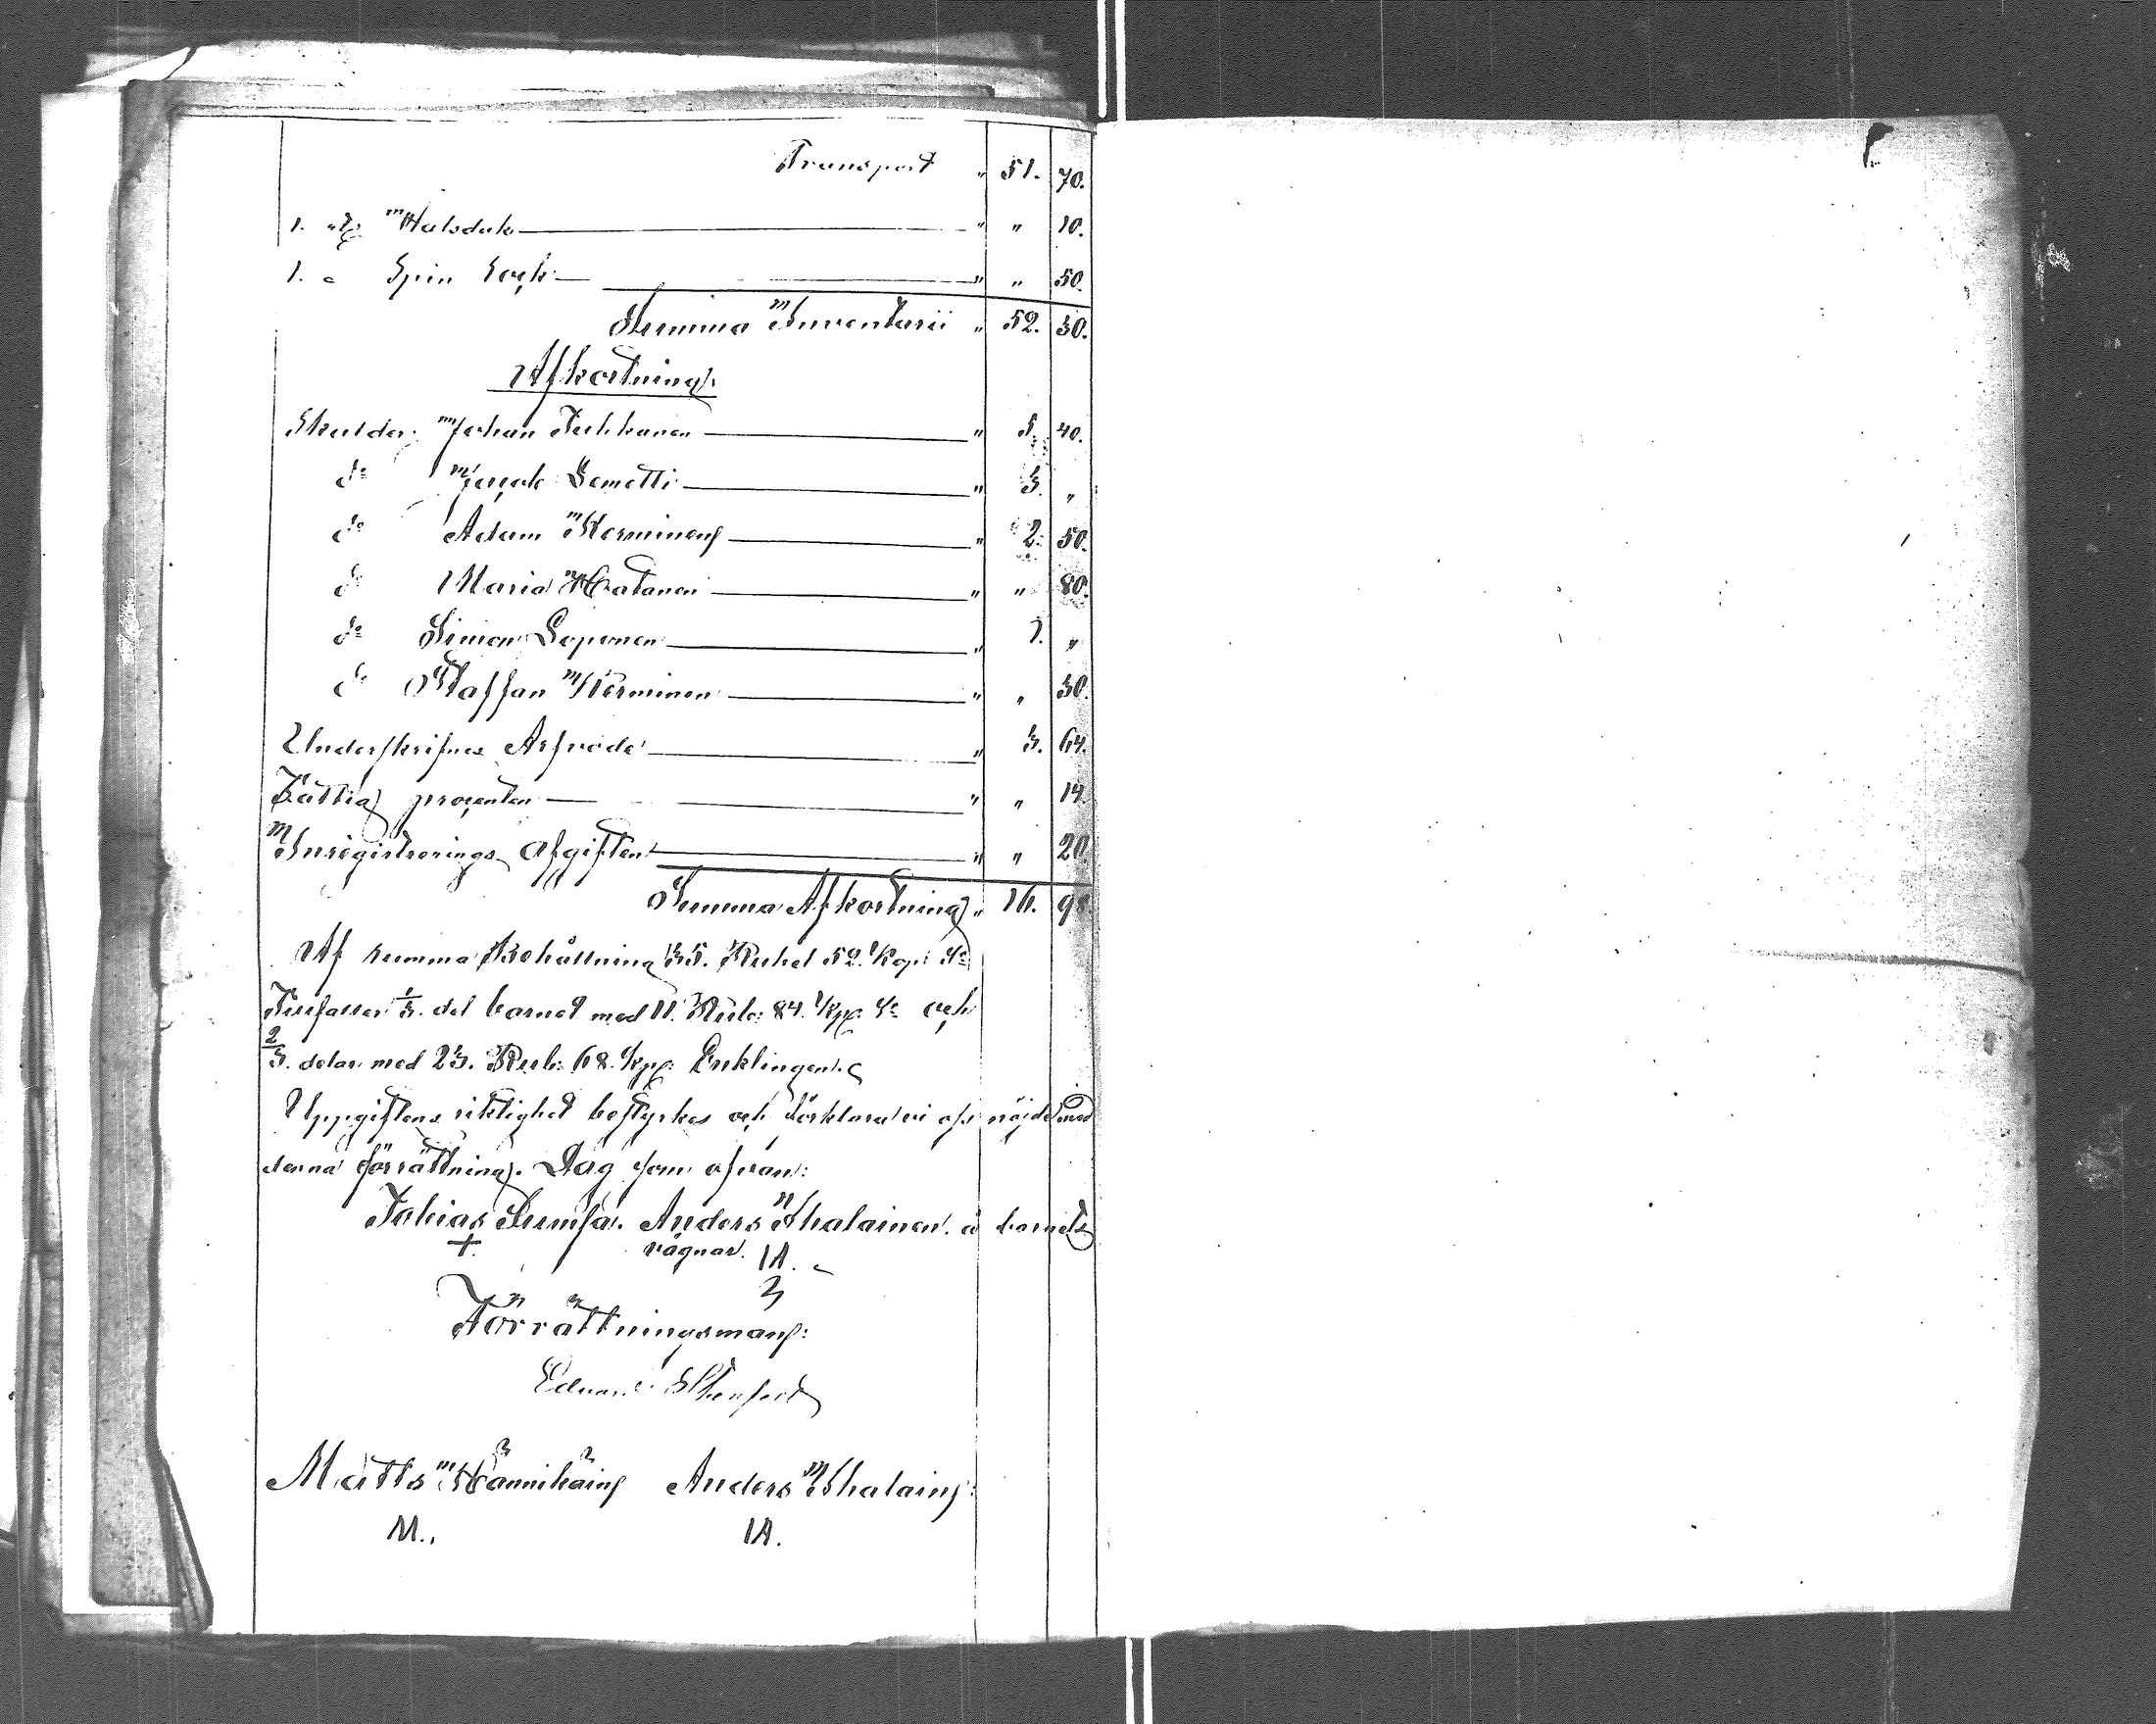 Transport " 51. 70.
1. st. Halsduk " " 10.
1. " Spin Rock " " 50.
Summa Inventarii " 52. 30.
Afkortning.
Skulder: Johan Tuhkanen " 5. 40.
do Jacob Lemetti " 3. "
do Adam Herminen " 2. 50.
do Maria Hatanen " " 80.
do Simon Loponen " 1. "
do Staffan Herminen " " 30.
Underskrifnes Arfvode " 3. 64.
Fattig procenten " " 14.
Inregistrerings Afgiften " " 20.
Summa Afkortning " 16. 98.
Af summa Behållning 35. Rubel 52. Kop: Sr
Tillfaller 1/3. del barnet med 11. Rub: 84. Kop. Sr och
2/3. delar med 23. Rub: 68. Kop: Enklingen.
Uppgiftens riktighet bestyrkes och förklara vi oss nöjde med
denna förrättning. Dag som ofvan:
Tobias Sumsa. Anders Ihalainen. å barnets
+ vägnar. IA.
Förrättningsman:
Matts Hännikäin Anders Ihalain:
M. IA.